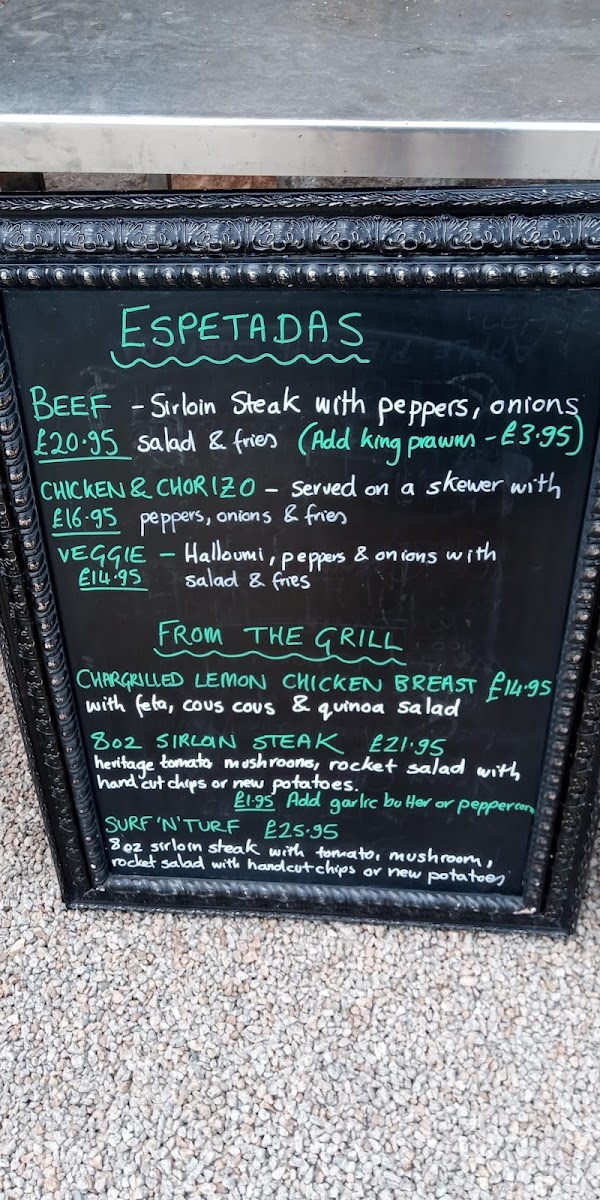 ESPETADAS
BEEF - Sirloin Steak with peppers, onions
£20.95 salad & fries (Add king prawns - £3.95)
CHICKEN & CHORIZO - Served on a skewer with
£16.95 peppers, onions & fries
VEGGIE - Halloumi, peppers & onions with
£14.95 salad & fries
FROM THE GRILL
CHARGRILLED LEMON CHICKEN BREAST £14.95
with feta, cous cous & quinoa salad
8oz SIRLOIN STEAK £21.95
heritage tomato mushrooms, rocket salad with
hand cut chips or new potatoes.
£1.95 Add garlic butter or peppercorn
SURF 'N' TURF £25.95
8oz sirloin steak with tomato, mushroom,
rocket salad with handcut chips or new potatoes